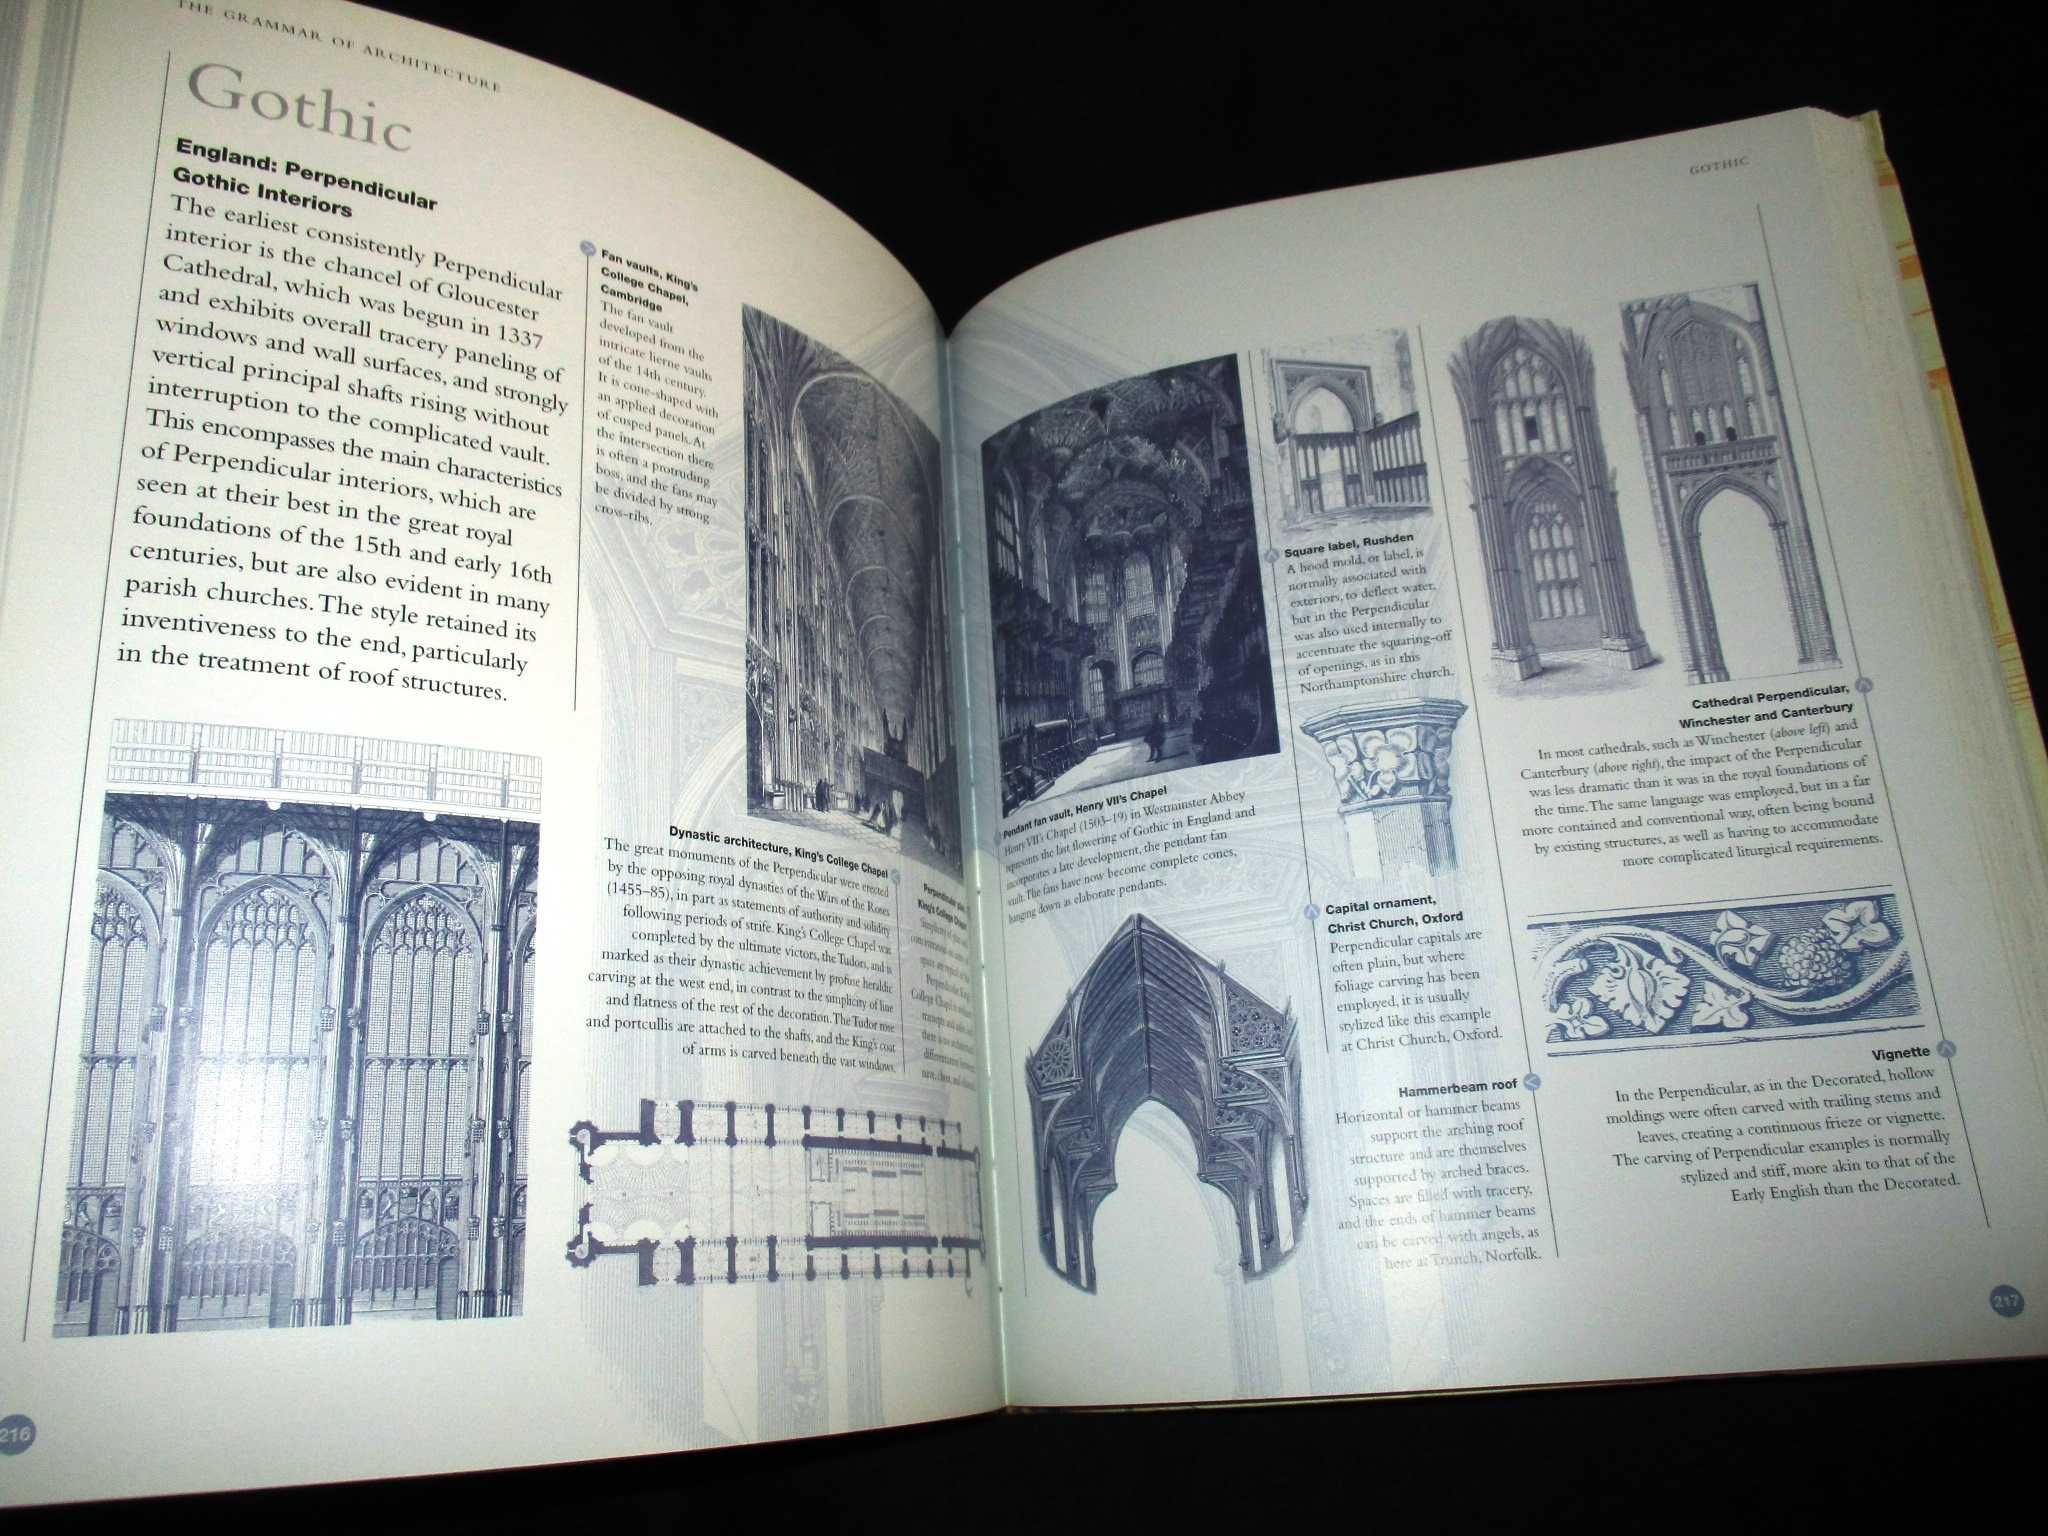 THE GRAMMAR OF ARCHITECTURE
Gothic
England: Perpendicular
Gothic Interiors
The earliest consistently Perpendicular
interior is the chancel of Gloucester
Cathedral, which was begun in 1337
and exhibits overall tracery paneling of
windows and wall surfaces, and strongly
vertical principal shafts rising without
interruption to the complicated vault.
This encompasses the main characteristics
of Perpendicular interiors, which are
seen at their best in the great royal
foundations of the 15th and early 16th
centuries, but are also evident in many
parish churches. The style retained its
inventiveness to the end, particularly
in the treatment of roof structures.
Fan vaults, King's
College Chapel,
Cambridge
The fan vault
developed from the
intricate lierne vaults
of the 14th century.
It is cone-shaped with
an applied decoration
of cusped panels. At
the intersection there
is often a protruding
boss, and the fans may
be divided by strong
cross-ribs.
Dynastic architecture, King's College Chapel
The great monuments of the Perpendicular were erected
by the opposing royal dynasties of the Wars of the Roses
(1455–85), in part as statements of authority and solidity
following periods of strife. King's College Chapel was
completed by the ultimate victors, the Tudors, and is
marked as their dynastic achievement by profuse heraldic
carving at the west end, in contrast to the simplicity of line
and flatness of the rest of the decoration. The Tudor rose
and portcullis are attached to the shafts, and the King's coat
of arms is carved beneath the vast windows.
Perpendicular
King's College
Simplicity of
space are typical
Perpendicular. King's
College Chapel
transepts and
there is no
differentiation between
nave, choir, and
216
GOTHIC
Pendant fan vault, Henry VII's Chapel
Henry VII's Chapel (1503–19) in Westminster Abbey
represents the last flowering of Gothic in England and
incorporates a late development, the pendant fan
vault. The fans have now become complete cones,
hanging down as elaborate pendants.
Square label, Rushden
A hood mold, or label, is
normally associated with
exteriors, to deflect water,
but in the Perpendicular
was also used internally to
accentuate the squaring-off
of openings, as in this
Northamptonshire church.
Cathedral Perpendicular,
Winchester and Canterbury
In most cathedrals, such as Winchester (above left) and
Canterbury (above right), the impact of the Perpendicular
was less dramatic than it was in the royal foundations of
the time. The same language was employed, but in a far
more contained and conventional way, often being bound
by existing structures, as well as having to accommodate
more complicated liturgical requirements.
Capital ornament,
Christ Church, Oxford
Perpendicular capitals are
often plain, but where
foliage carving has been
employed, it is usually
stylized like this example
at Christ Church, Oxford.
Hammerbeam roof
Horizontal or hammer beams
support the arching roof
structure and are themselves
supported by arched braces.
Spaces are filled with tracery,
and the ends of hammer beams
can be carved with angels, as
here at Trunch, Norfolk.
Vignette
In the Perpendicular, as in the Decorated, hollow
moldings were often carved with trailing stems and
leaves, creating a continuous frieze or vignette.
The carving of Perpendicular examples is normally
stylized and stiff, more akin to that of the
Early English than the Decorated.
217